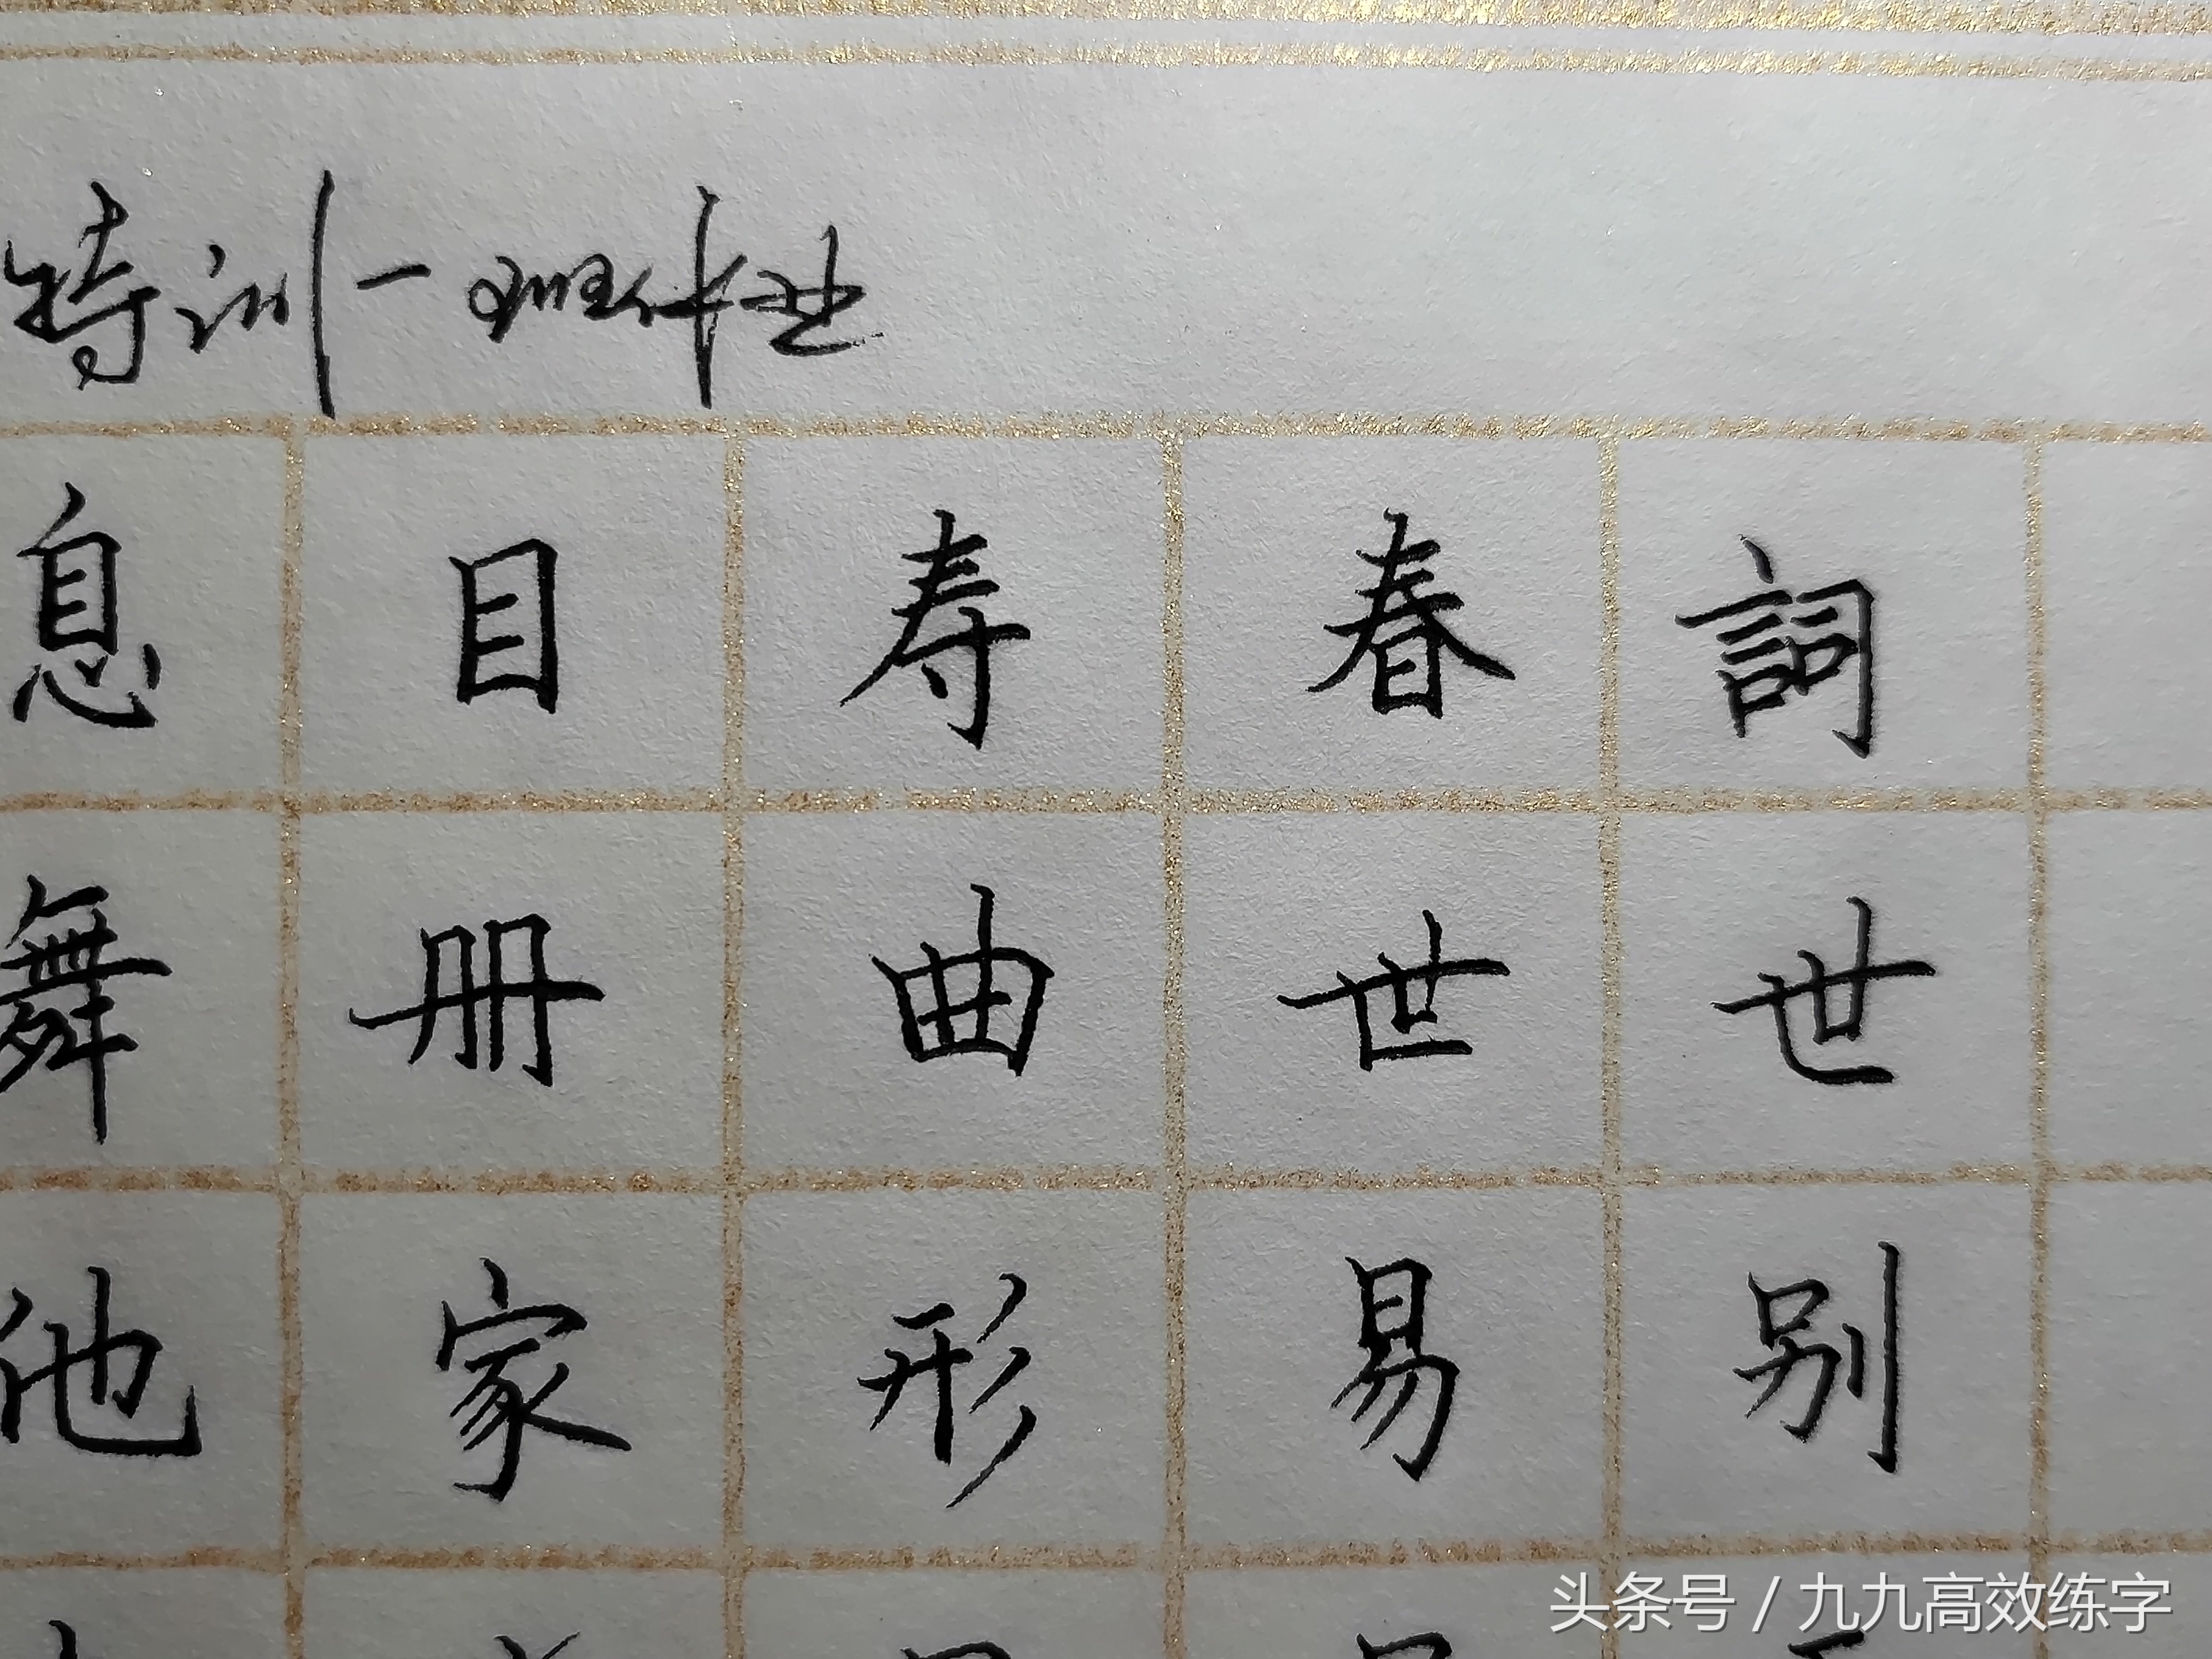 特训一班作业
息目寿春詞
舞册曲世世
他家形易别
头条号 / 九九高效练字